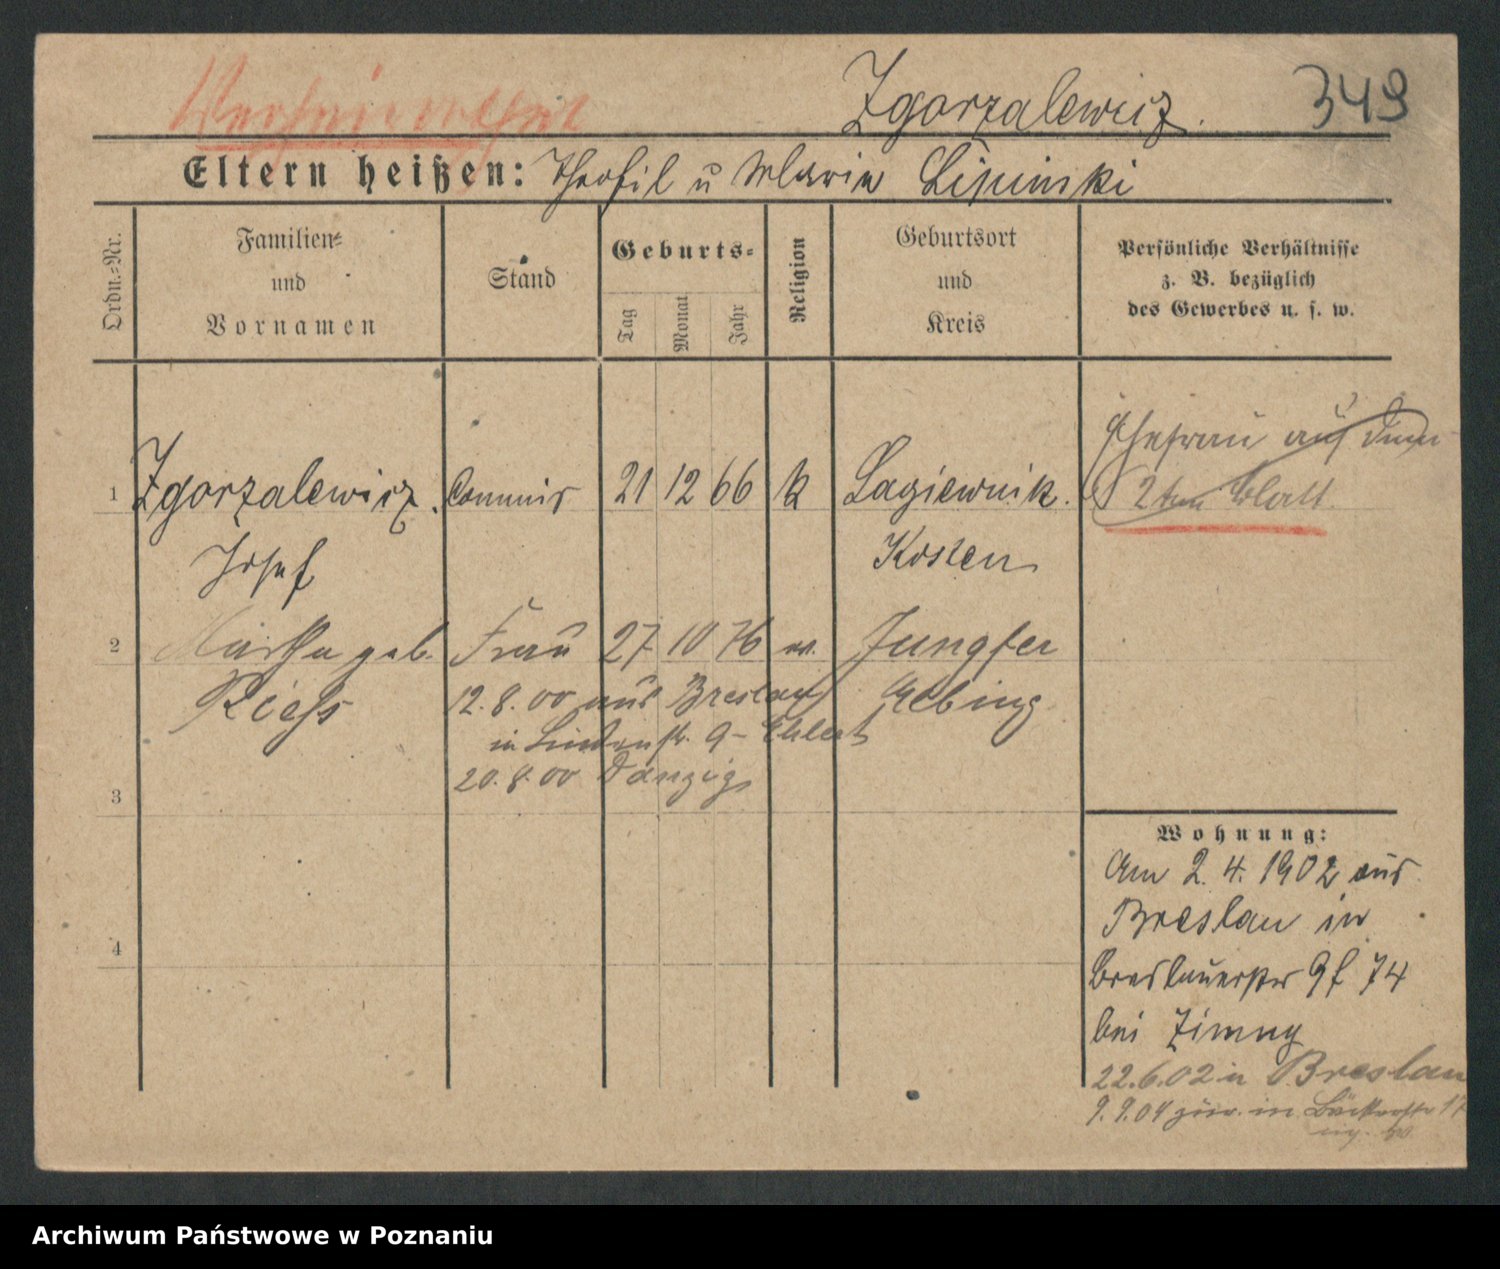 Verheirathet
Zgorzalewicz. 349
Eltern heißen: Theofil u Maria Lipinski
Ordn.-Nr.
Familien-
und
Vornamen
Stand
Geburts-
Tag
Monat
Jahr
Religion
Geburtsort
und
Kreis
Persönliche Verhältnisse
z. B. bezüglich
des Gewerbes u. s. w.
1 Zgorzalewicz. Commis 21 12 66 k Lagiewnik.
Josef Kosten
Ehefrau auf dem
2ten Blatt
2 Martha geb. Frau 27 10 76 ev. Jungfer
Riehs Elbing
12.8.00 aus Breslau
in Lindenstr. 9 - Ehlert
20.8.00 Danzig
3
4
Wohnung:
Am 2. 4. 1902 aus
Breslau in
Breslauerstr 9 f 74
bei Zimny
22.6.02 n Breslau
9.9.04 zur. in Bäckerstr 17
Archiwum Państwowe w Poznaniu